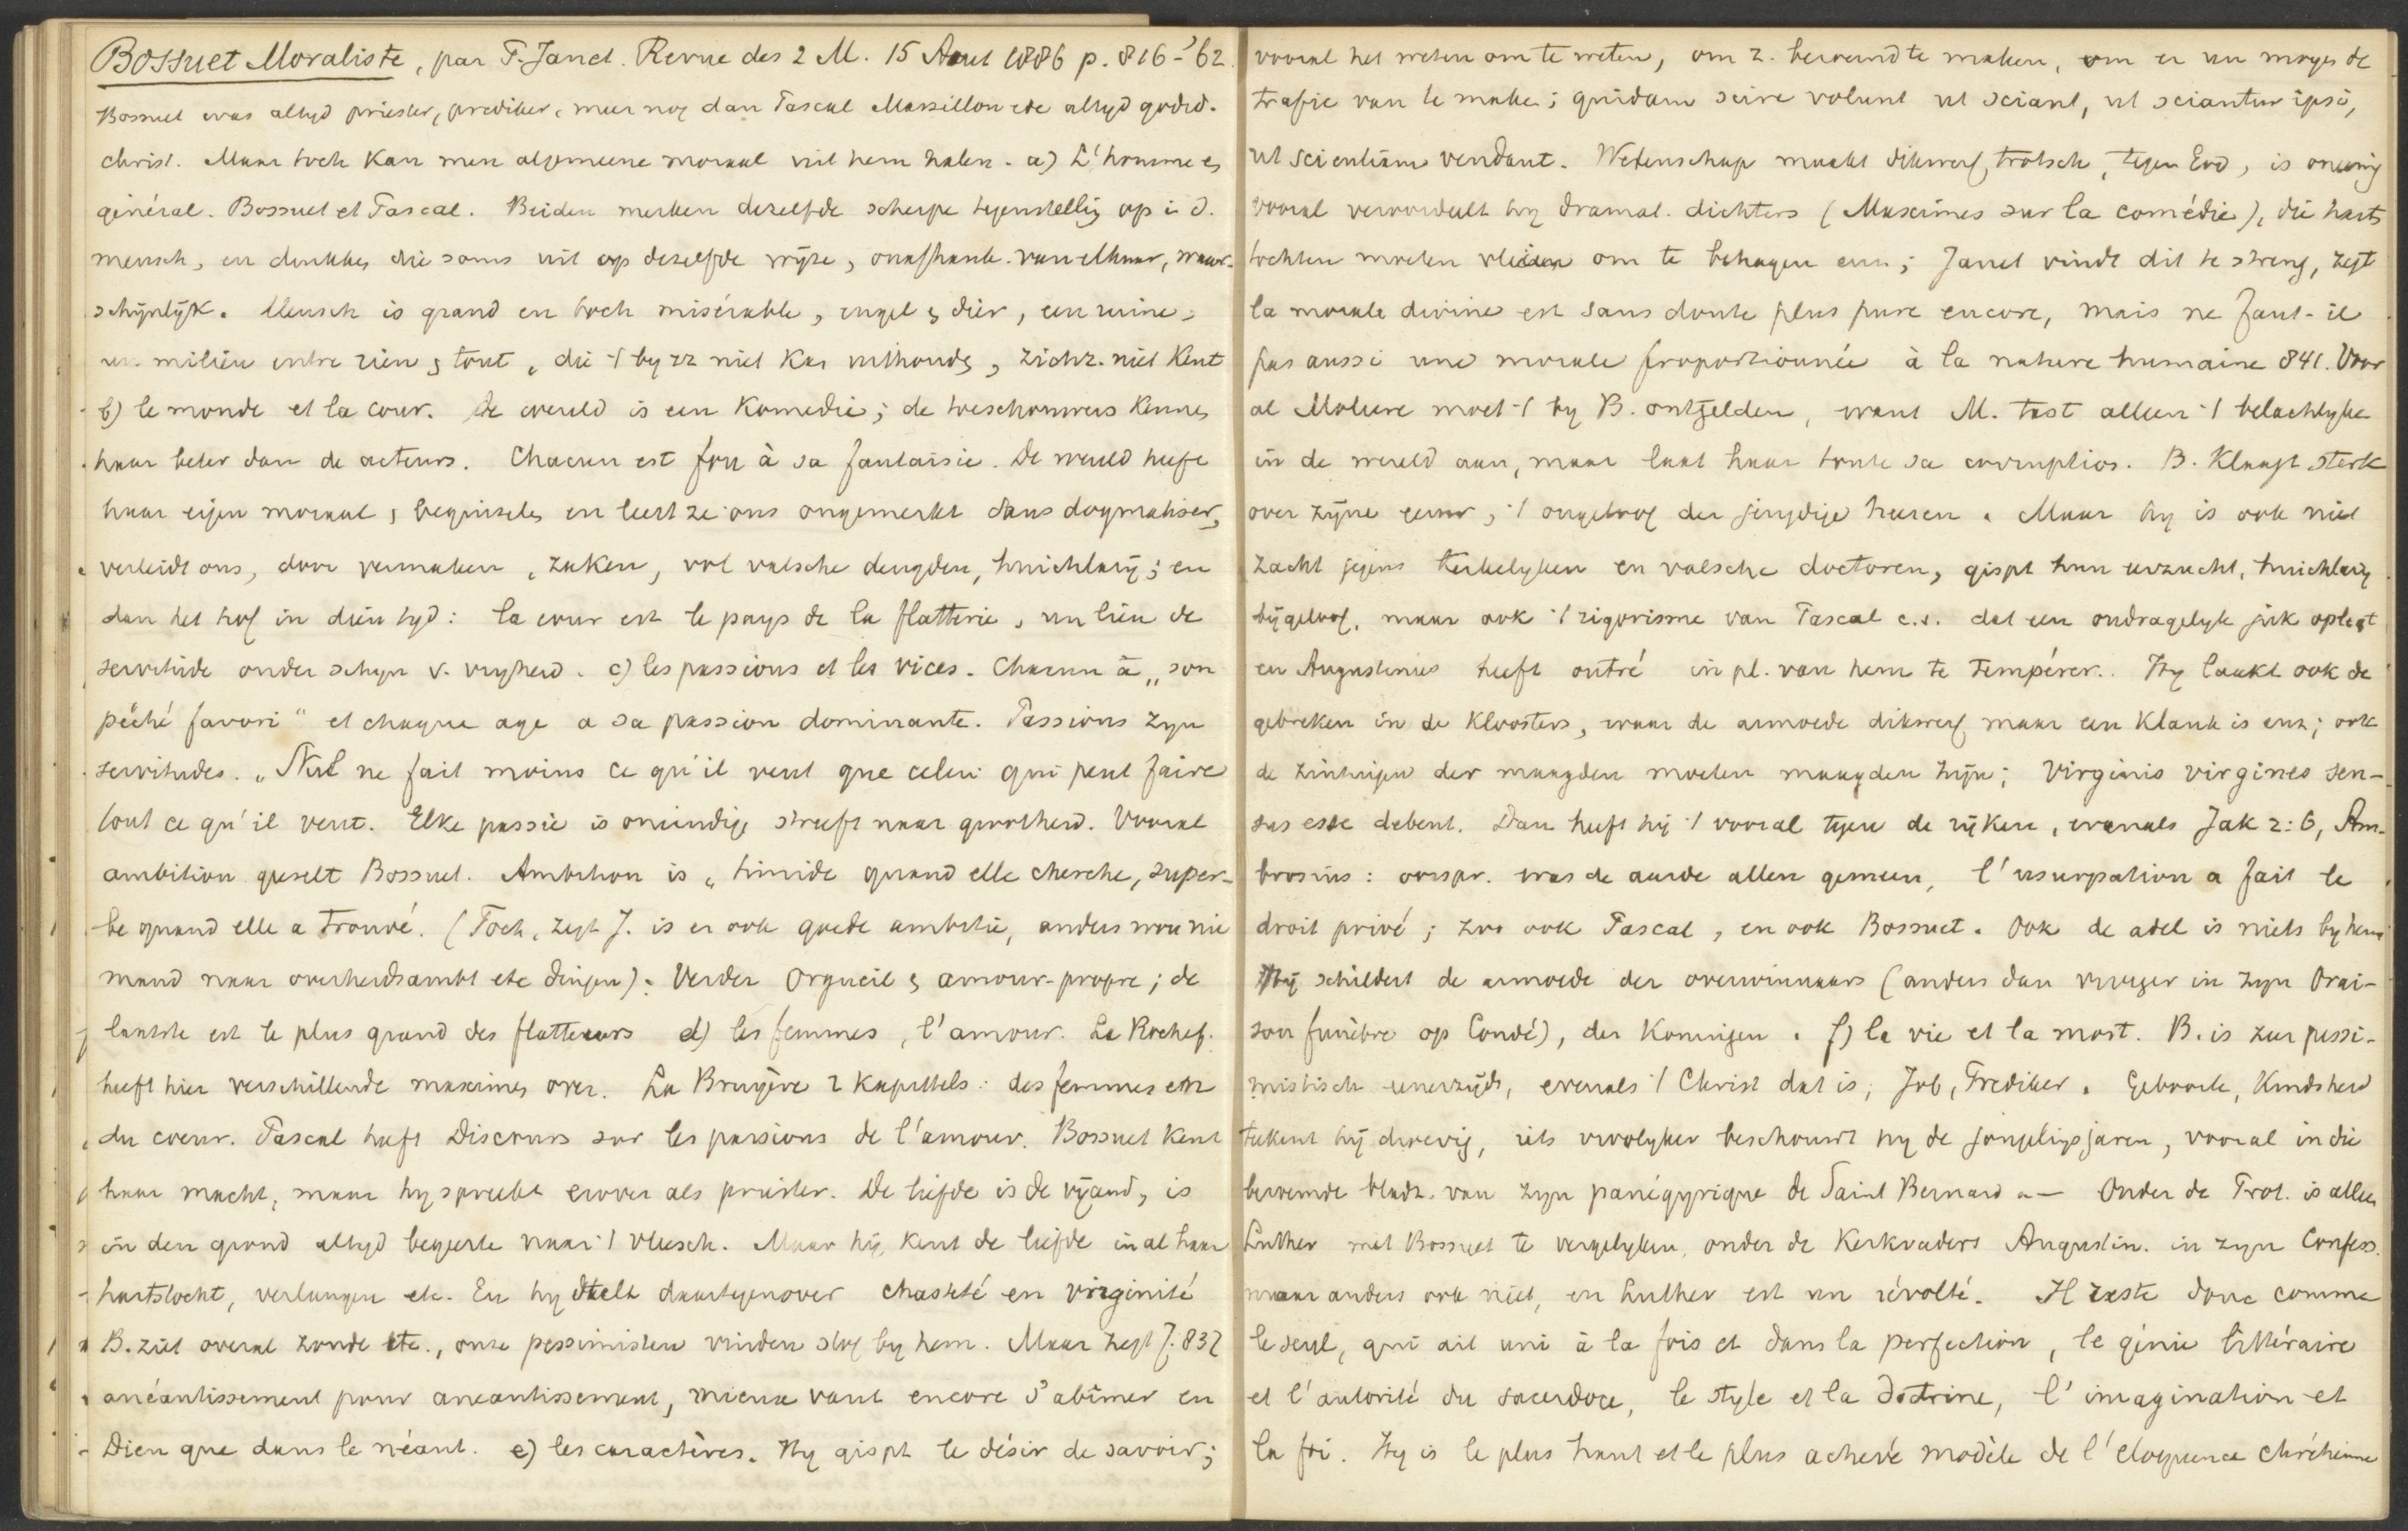 Bossuet Moraliste, par P. Janet. Revue des 2 M. 15 Aout 1886 p. 816-'62.
Bossuet was altyd priester, prediker, meer nog dan Pascal Massillon etc altyd godsd.
christ. Maar toch kan men algemeene moraal uit hem halen. a) L'homme en
général. Bossuet et Pascal. Beiden merken dezelfde scherpe tegenstelling op i. d.
mensch, en drukken die soms uit op dezelfde wyze, onafhank. van elkaar, waar-
schijnlijk. Mensch is grand en toch misérable, engel & dier, een ruine,
un milieu entre rien & tout, die 't by zz niet kan uithouden, zichz. niet kent
b) le monde et la cour. De wereld is een komedie; de toeschouwers kennen
haar beter dan de acteurs. Chacun est fou à sa fantaisie. De wereld heeft
haar eigen moraal, beginselen en leert ze ons ongemerkt sans dogmatiser,
verleidt ons, door vermaken, zaken, vol valsche deugden, huichlarij; en
dan het hof in dien tyd: la cour est le pays de la flatterie, un lieu de
servitude onder schyn v. vryheid. c) les passions et les vices. Chacun a „son
péché favori" et chaque age a sa passion dominante. Passions zyn
servitudes. „Nul ne fait moins ce qu'il veut que celui qui peut faire
tout ce qu'il veut. Elke passie is oneindig, streeft naar grootheid. Vooral
ambition geeselt Bossuet. Ambition is „timide quand elle cherche, super-
be quand elle a trouvé. (Toch, zegt J. is er ook goede ambitie, anders wou nie
mand naar overheidsambt etc dingen). Verder Orgueil & amour-propre; de
laatste est le plus grand des flatteurs d) les femmes, l'amour. La Rochef.
heeft hier verschillende maximes over. La Bruyère 2 kapittels: des femmes en
du coeur. Pascal heeft Discours sur les passions de l'amour. Bossuet kent
haar macht, maar hy spreekt erover als priester. De liefde is de vijand, is
in den grond altyd begeerte naar 't vleesch. Maar hij kent de liefde in al haar
hartstocht, verlangen etc. En hy stelt daartegenover chasteté en virginité
B. ziet overal zonde etc., onze pessimisten vinden stof by hem. Maar zegt J. 832
anéantissement pour aneantissement, mieux vaut encore s'abîmer en
Dieu que dans le néant. e) les caractères. Hy gispt le désir de savoir;
vooral het weten om te weten, om z. beroemd te maken, om er un moyen de
trafic van te maken; quidam scire volunt ut sciant, ut sciantur ipsi,
ut scientiam vendant. Wetenschap maakt dikwerf trotsch, tegen God, is oneenig
vooral veroordeelt hy dramat. dichters (Maximes sur la comédie), die harts
tochten moeten vleien om te behagen enz; Janet vindt dit te streng, zegt
la morale divine est sans doute plus pure encore, mais ne faut-il
pas aussi une morale proportionnée à la nature humaine 841. Voor
al Moliere moet 't by B. ontgelden, want M. tast alleen 't belachlyke
in de wereld aan, maar laat haar toute sa corruption. B. klaagt sterk
over zijne eeuw, 't ongeloof der heeren. Maar hy is ook niet
zacht jegens kerkelyken en valsche doctoren, gispt hun eerzucht, huichlarij
bijgeloof, maar ook 't rigorisme van Pascal c.s. dat een ondragelyk juk oplegt
en Augustinus heeft outré in pl. van hem te tempérer. Hy laakt ook de
gebreken in de kloosters, waar de armoede dikwerf maar een klank is enz; ook
de zintuigen der maagden moeten maagden zijn; Virginis virgines sen-
sus esse debent. Dan heeft hij 't vooral tegen de rijken, evenals Jak 2:6, Am-
brosius: oorspr. was de aarde allen gemeen, l'usurpation a fait le
droit privé; zoo ook Pascal, en ook Bossuet. Ook de adel is niets by hem
Hij schildert de armoede der overwinnaars (anders dan vroeger in zyn Orai-
son funèbre op Condé), der koningen. f) la vie et la mort. B. is zeer pessi-
mistisch eenerzijds, evenals 't Christ dat is, Job, Prediker. Geboorte, kindsheid
tekent hij droevig, iets vroolyker beschouwt hy de jongelingsjaren, vooral in die
beroemde bladz. van zyn panégyrique de Saint Bernard. — Onder de Prot. is alleen
Luther met Bossuet te vergelyken, onder de Kerkvaders Augustin. in zyn Confess.
maar anders ook niet, en Luther est un révolté. Il reste donc comme
le seul, qui ait uni à la fois et dans la perfection, le génie littéraire
et l'autorité du sacerdoce, le style et la doctrine, l'imagination et
la foi. Hy is le plus haut et le plus achevé modèle de l'eloquence chrétienne